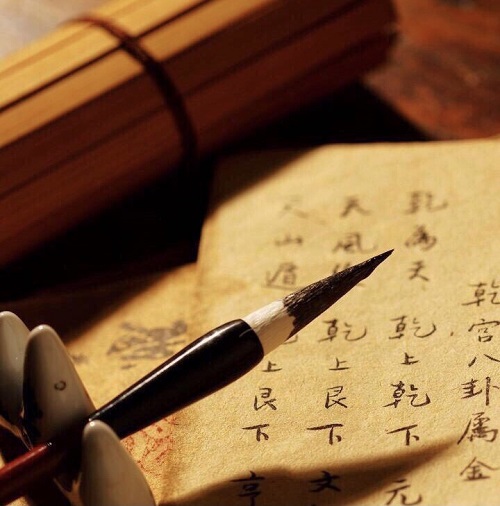 乾宫八卦属金
乾為天 乾上乾下 元
天風 乾上艮下 文
天山遁 上艮下 亨